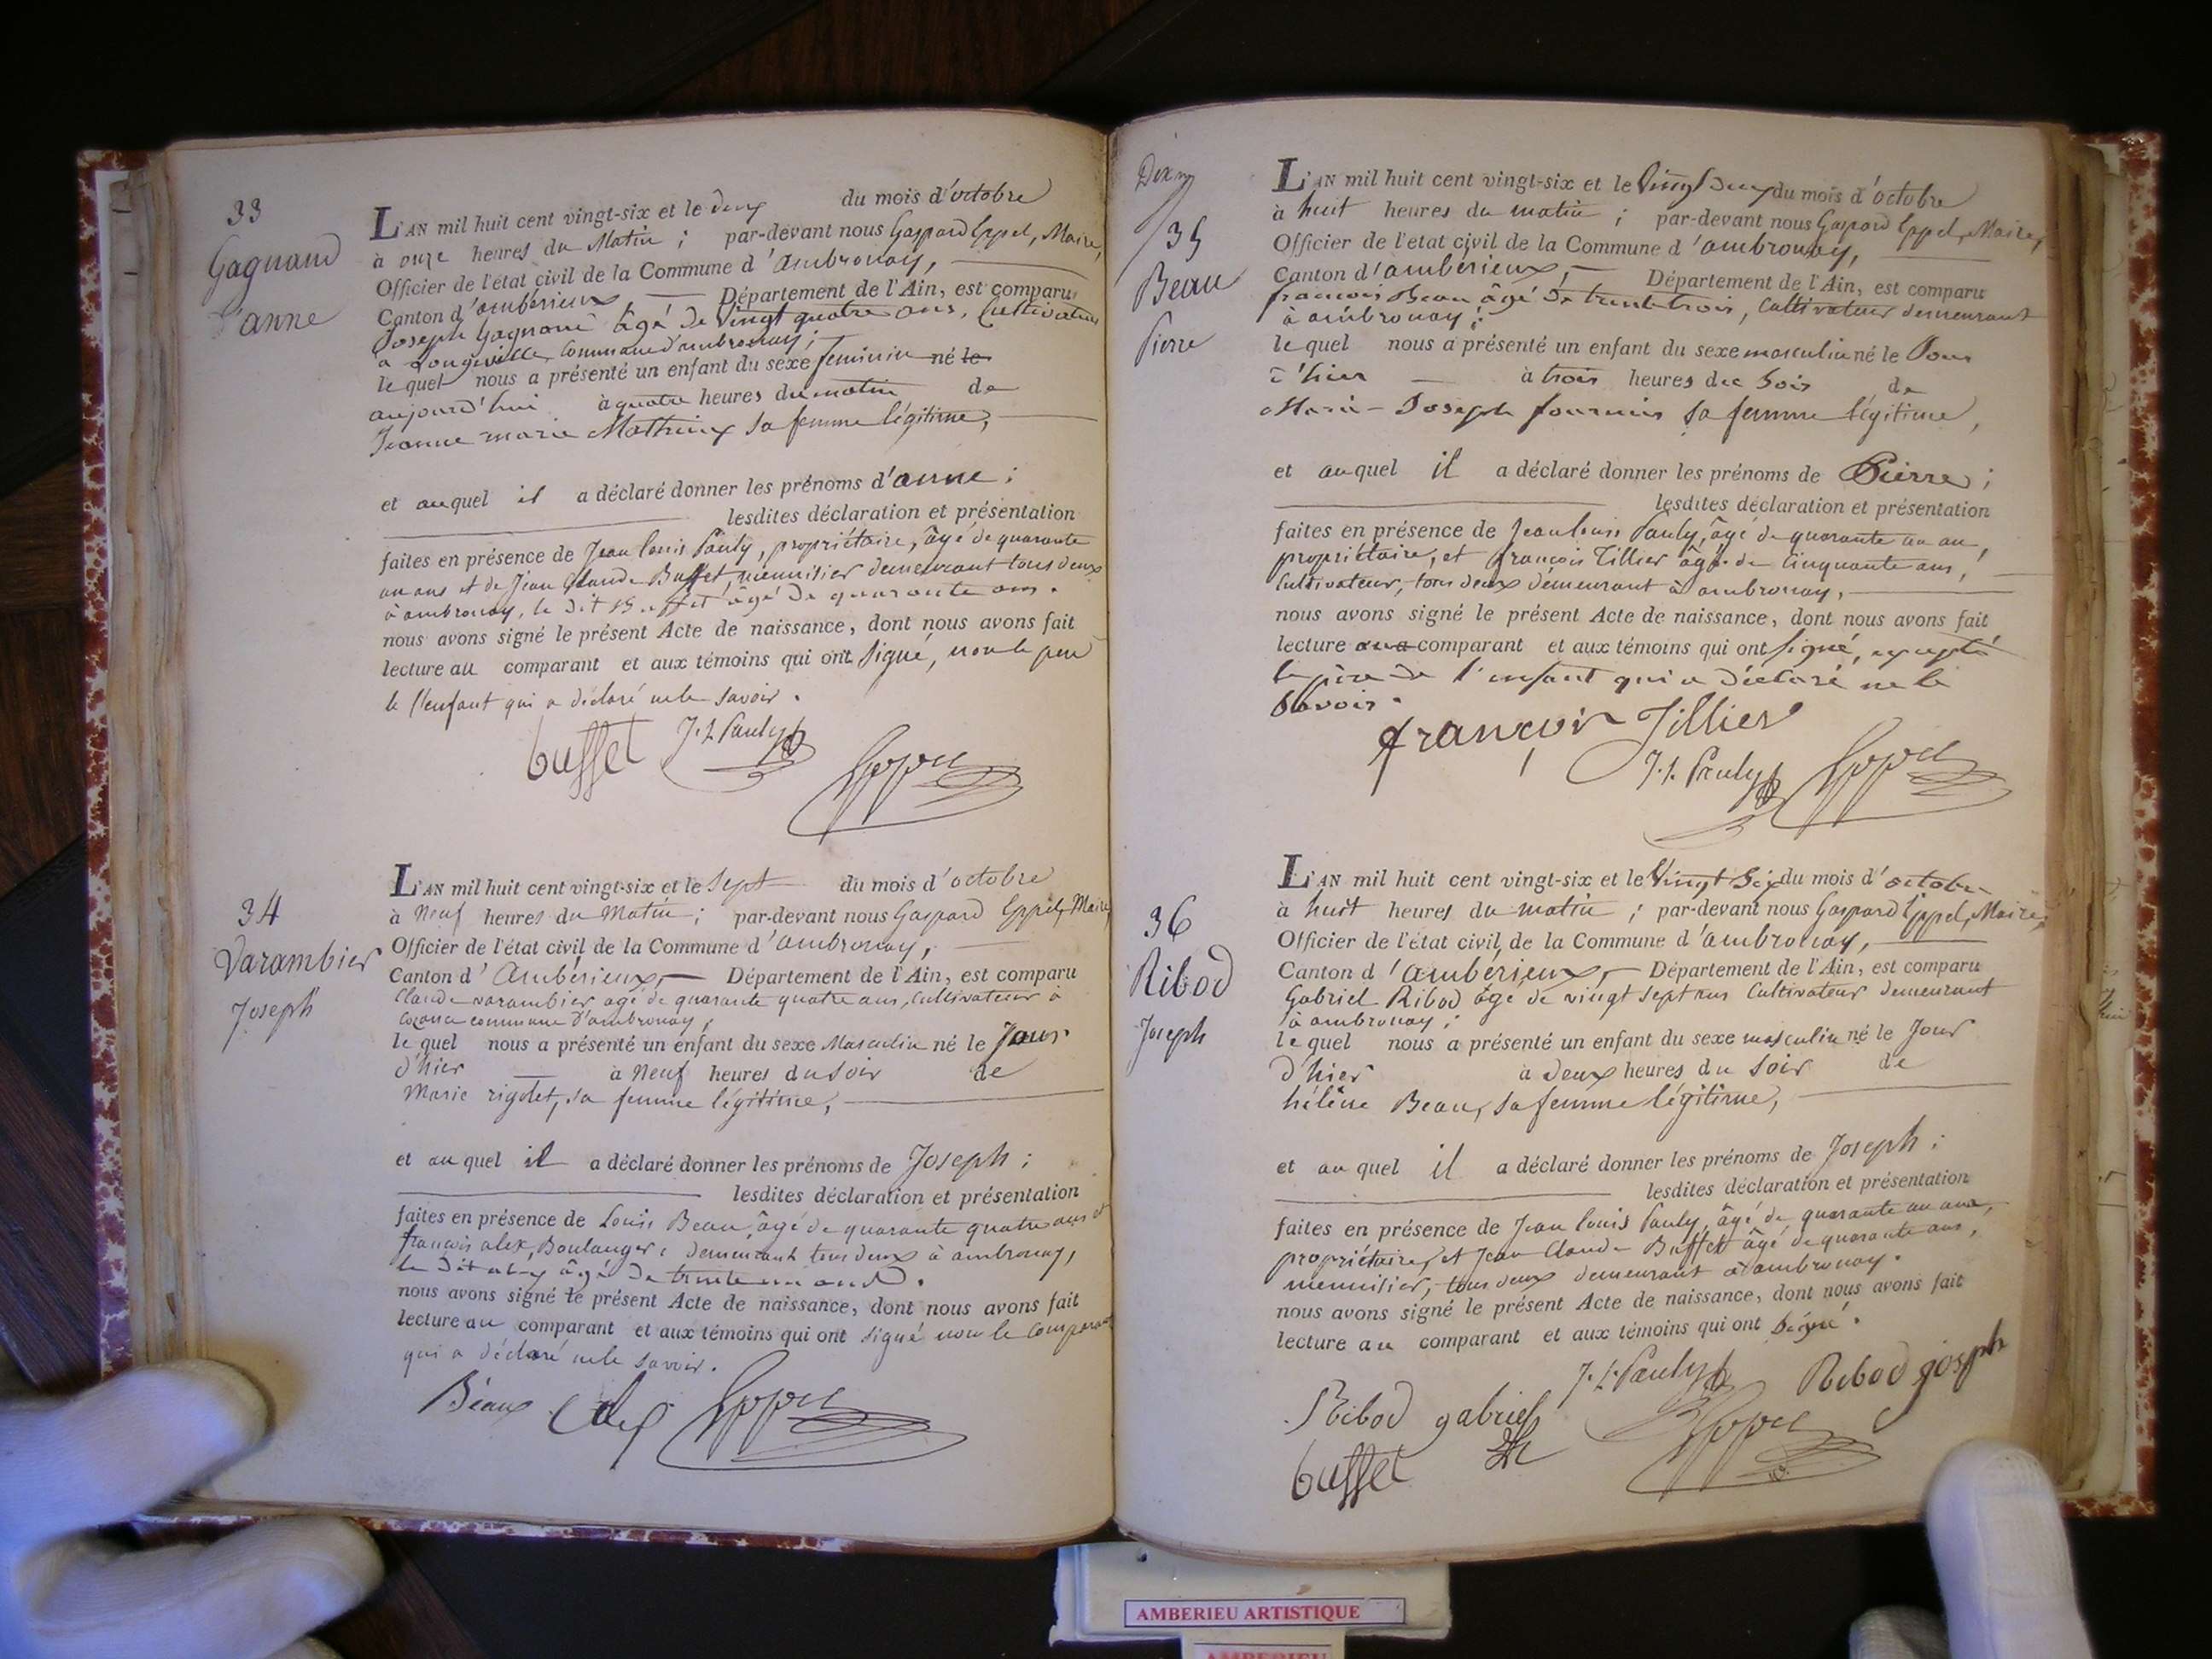 33
Gagnand
anne
L'AN mil huit cent vingt-six et le deux du mois d'octobre
à onze heures du Matin ; par-devant nous Gaspard Eppel, Maire,
Officier de l'état civil de la Commune d'ambronay,
Canton d'ambérieux Département de l'Ain, est comparu
Joseph Gagnand âgé de vingt quatre ans, Cultivateur
à Longeville Commune d'ambronay ;
le quel nous a présenté un enfant du sexe feminin né le
aujourd'hui à quatre heures du matin de
Jeanne marie Mathieux sa femme légitime,
et auquel il a déclaré donner les prénoms d'anne ;
lesdites déclaration et présentation
faites en présence de Jean louis Pauly, propriétaire, âgé de quarante
un ans et de Jean Claude Buffet, menuisier demeurant tous deux
à ambronay, le dit Buffet âgé de quarante ans.
nous avons signé le présent Acte de naissance, dont nous avons fait
lecture au comparant et aux témoins qui ont signé, non le pere
de l'enfant qui a déclaré ne le savoir.
buffet J. L. Pauly Eppel
34
Varambier
Joseph
L'AN mil huit cent vingt-six et le Sept du mois d'octobre
à Neuf heures du Matin ; par-devant nous Gaspard Eppel, Maire
Officier de l'état civil de la Commune d'ambronay,
Canton d'Ambérieux, Département de l'Ain, est comparu
Claude varambier agé de quarante quatre ans, cultivateur à
commune d'ambronay,
le quel nous a présenté un enfant du sexe Masculin né le Jour
d'hier à Neuf heures du soir de
Marie rigolet, sa femme légitime,
et auquel il a déclaré donner les prénoms de Joseph ;
lesdites déclaration et présentation
faites en présence de Louis Beau, âgé de quarante quatre ans et
françois alex, Boulanger demeurant tous deux à ambronay,
le dit alex âgé de trente un ans.
nous avons signé le présent Acte de naissance, dont nous avons fait
lecture au comparant et aux témoins qui ont signé non le Comparant
qui a déclaré ne le savoir.
Béaux alex Eppel
35
Beau
Pierre
L'AN mil huit cent vingt-six et le Vingt deux du mois d'octobre
à huit heures du matin ; par-devant nous Gaspard Eppel, Maire,
Officier de l'état civil de la Commune d'ambronay,
Canton d'ambérieux, Département de l'Ain, est comparu
francois Beau âgé de trente trois, Cultivateur demeurant
à ambronay ;
le quel nous a présenté un enfant du sexe masculin né le Jour
d'hier à trois heures du Soir de
Marie-Joseph fournier sa femme légitime,
et auquel il a déclaré donner les prénoms de Pierre ;
lesdites déclaration et présentation
faites en présence de Jean louis Pauly, âgé de quarante un an,
propriétaire, et françois Tillier âgé de Cinquante ans,
Cultivateur, tous deux demeurant à ambronay,
nous avons signé le présent Acte de naissance, dont nous avons fait
lecture au comparant et aux témoins qui ont signé, excepté
le père de l'enfant qui a déclaré ne le
Savoir.
françois Tillier
J. L. Pauly Eppel
36
Ribod
Joseph
L'AN mil huit cent vingt-six et le Vingt Six du mois d'octobre
à huit heures du matin ; par-devant nous Gaspard Eppel, Maire,
Officier de l'état civil de la Commune d'ambronay,
Canton d'ambérieux, Département de l'Ain, est comparu
Gabriel Ribod âgé de vingt sept ans Cultivateur demeurant
à ambronay ;
le quel nous a présenté un enfant du sexe masculin né le Jour
d'hier à deux heures du Soir de
hélène Beau, sa femme légitime,
et auquel il a déclaré donner les prénoms de Joseph ;
lesdites déclaration et présentation
faites en présence de Jean louis Pauly, âgé de quarante un ans,
propriétaire, et Jean Claude Buffet âgé de quarante ans,
menuisier, tous deux demeurant à ambronay.
nous avons signé le présent Acte de naissance, dont nous avons fait
lecture au comparant et aux témoins qui ont signé.
J. L. Pauly Ribod joseph
Ribod gabriel Eppel
buffet
AMBERIEU ARTISTIQUE
AMBERIEU